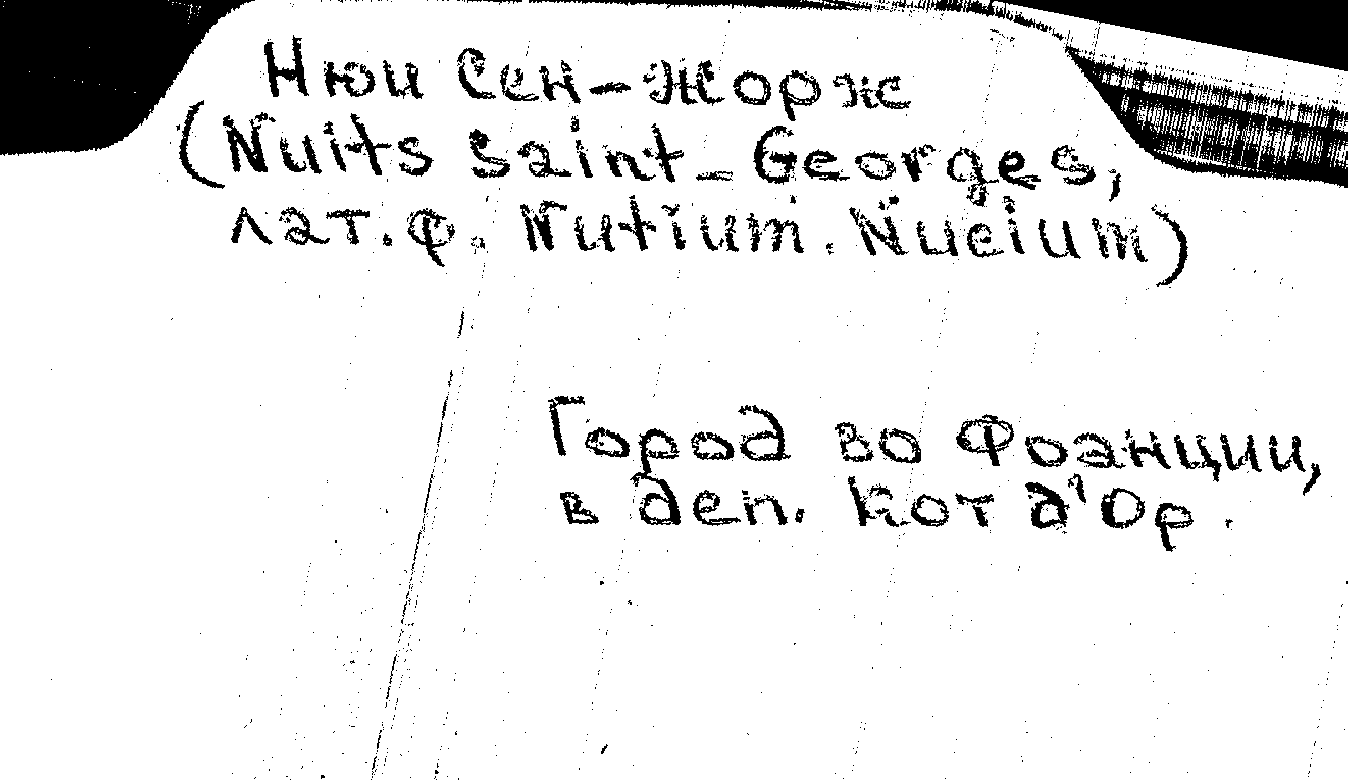 Нюи Сен-Жорж
(Nuits Saint-Georges,
лат.ф. Nutium. Nucium)
Город во Фоанции,
в деп. Кот д'Ор.